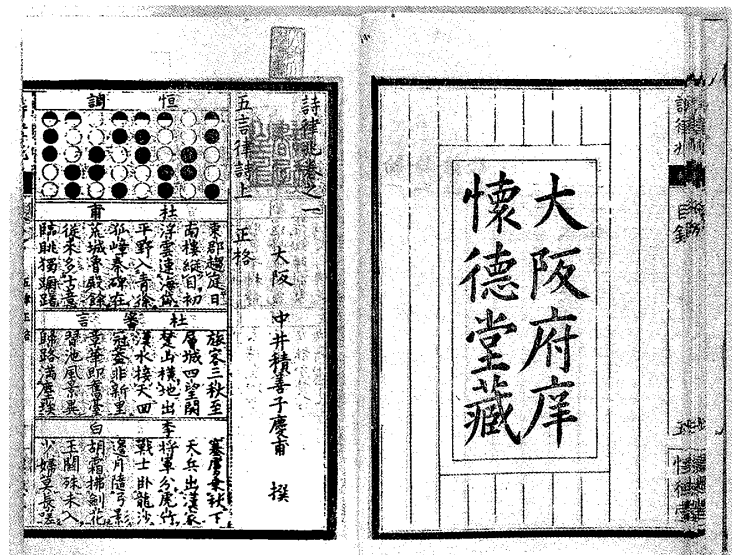 詩律兆
目錄
懷德堂
大阪府庠
懷德堂藏
詩律兆卷之一
大阪 中井積善子慶甫 撰
五言律詩上 正格
恒調
杜甫
東郡趨庭日
南樓縱目初
浮雲連海岱
平野入青徐
孤嶂秦碑在
荒城魯殿餘
從來多古意
臨眺獨躊躇
杜審言
旅客三秋至
層城四望開
楚山橫地出
漢水接天回
冠蓋非新里
章華即舊臺
習池風景異
歸路滿塵埃
李白
塞虜乘秋下
天兵出漢家
將軍分虎竹
戰士臥龍沙
邊月隨弓影
胡霜拂劍花
玉關殊未入
少婦莫長嗟